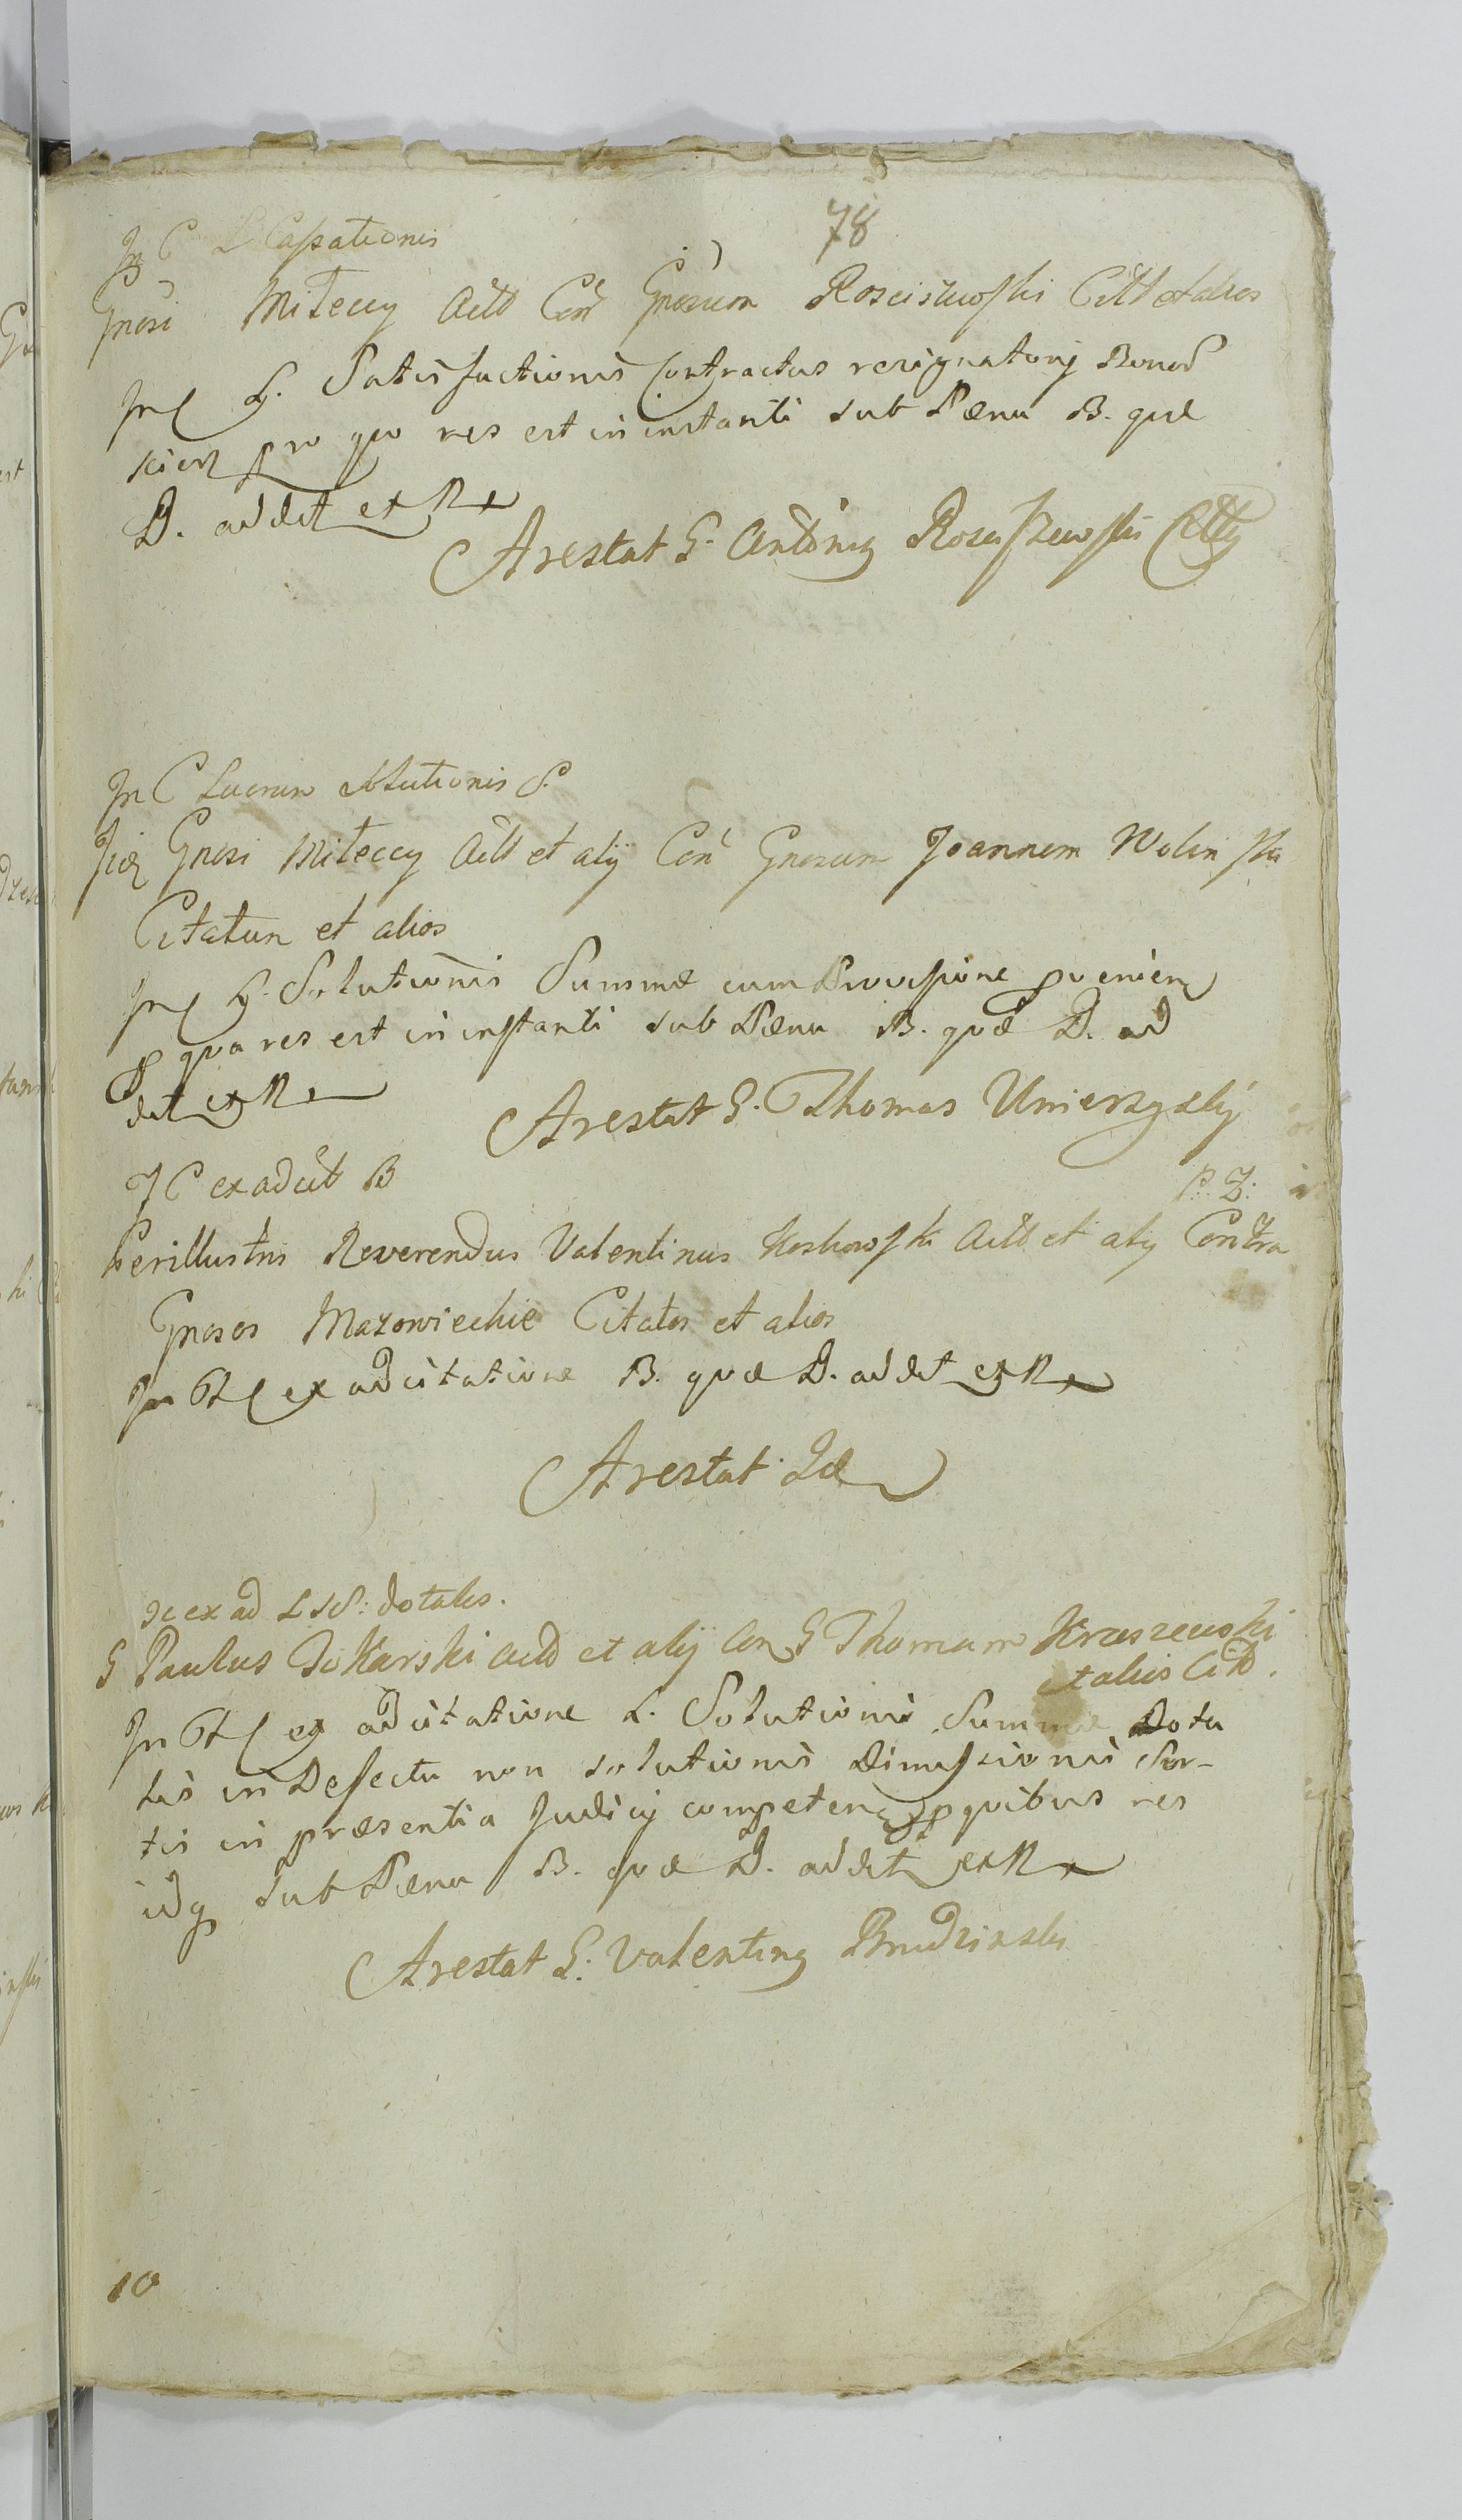 78
In C L Cassationis
Gnosi Miłeccy Actt Con Gnosum Rosciszewski Citt et alios
In C L. Satisfactionis Contractus resignatorij Bonor
pro quo res est in instanti sub Pæna B. quæ
D. addet et N
Arestat G. Antonig Rosciszewski Citt
In C Lucrum Solutionis S.
Iidē Gnosi Miłeccy Actt et alij Con Gnosum Joannem Wolinski
Citatum et alios
In C L. Solutionis Summæ cum Provisione provenien
p qua res est in instanti sub Pæna B. quæ D. ad
det et N
Arestat G. Thomas Umierzyski
P. Z.
I C ex adcit B
Perillustris Reverendus Valentinus Koskowski Actt et alij Contra
Gnosos Mazowieckie Citatos et alios
In Tt C ex adcitatione B. quæ D. addet et N
Arestat Idē
Ic ex ad L Sol: dotalis.
G Paulus Tokarski Actt et alij Con G Thomam Kraszewski
et alios Citt.
In Tt C ex adcitatione L. Solutionis Summæ Dota
lis in Defectu non solutionis Dimissionis Sor-
tis in præsentia Judicij competen p quibus res
idq sub Pæna B. quæ D. addet et N
Arestat G: Valenting Brudzinski
10